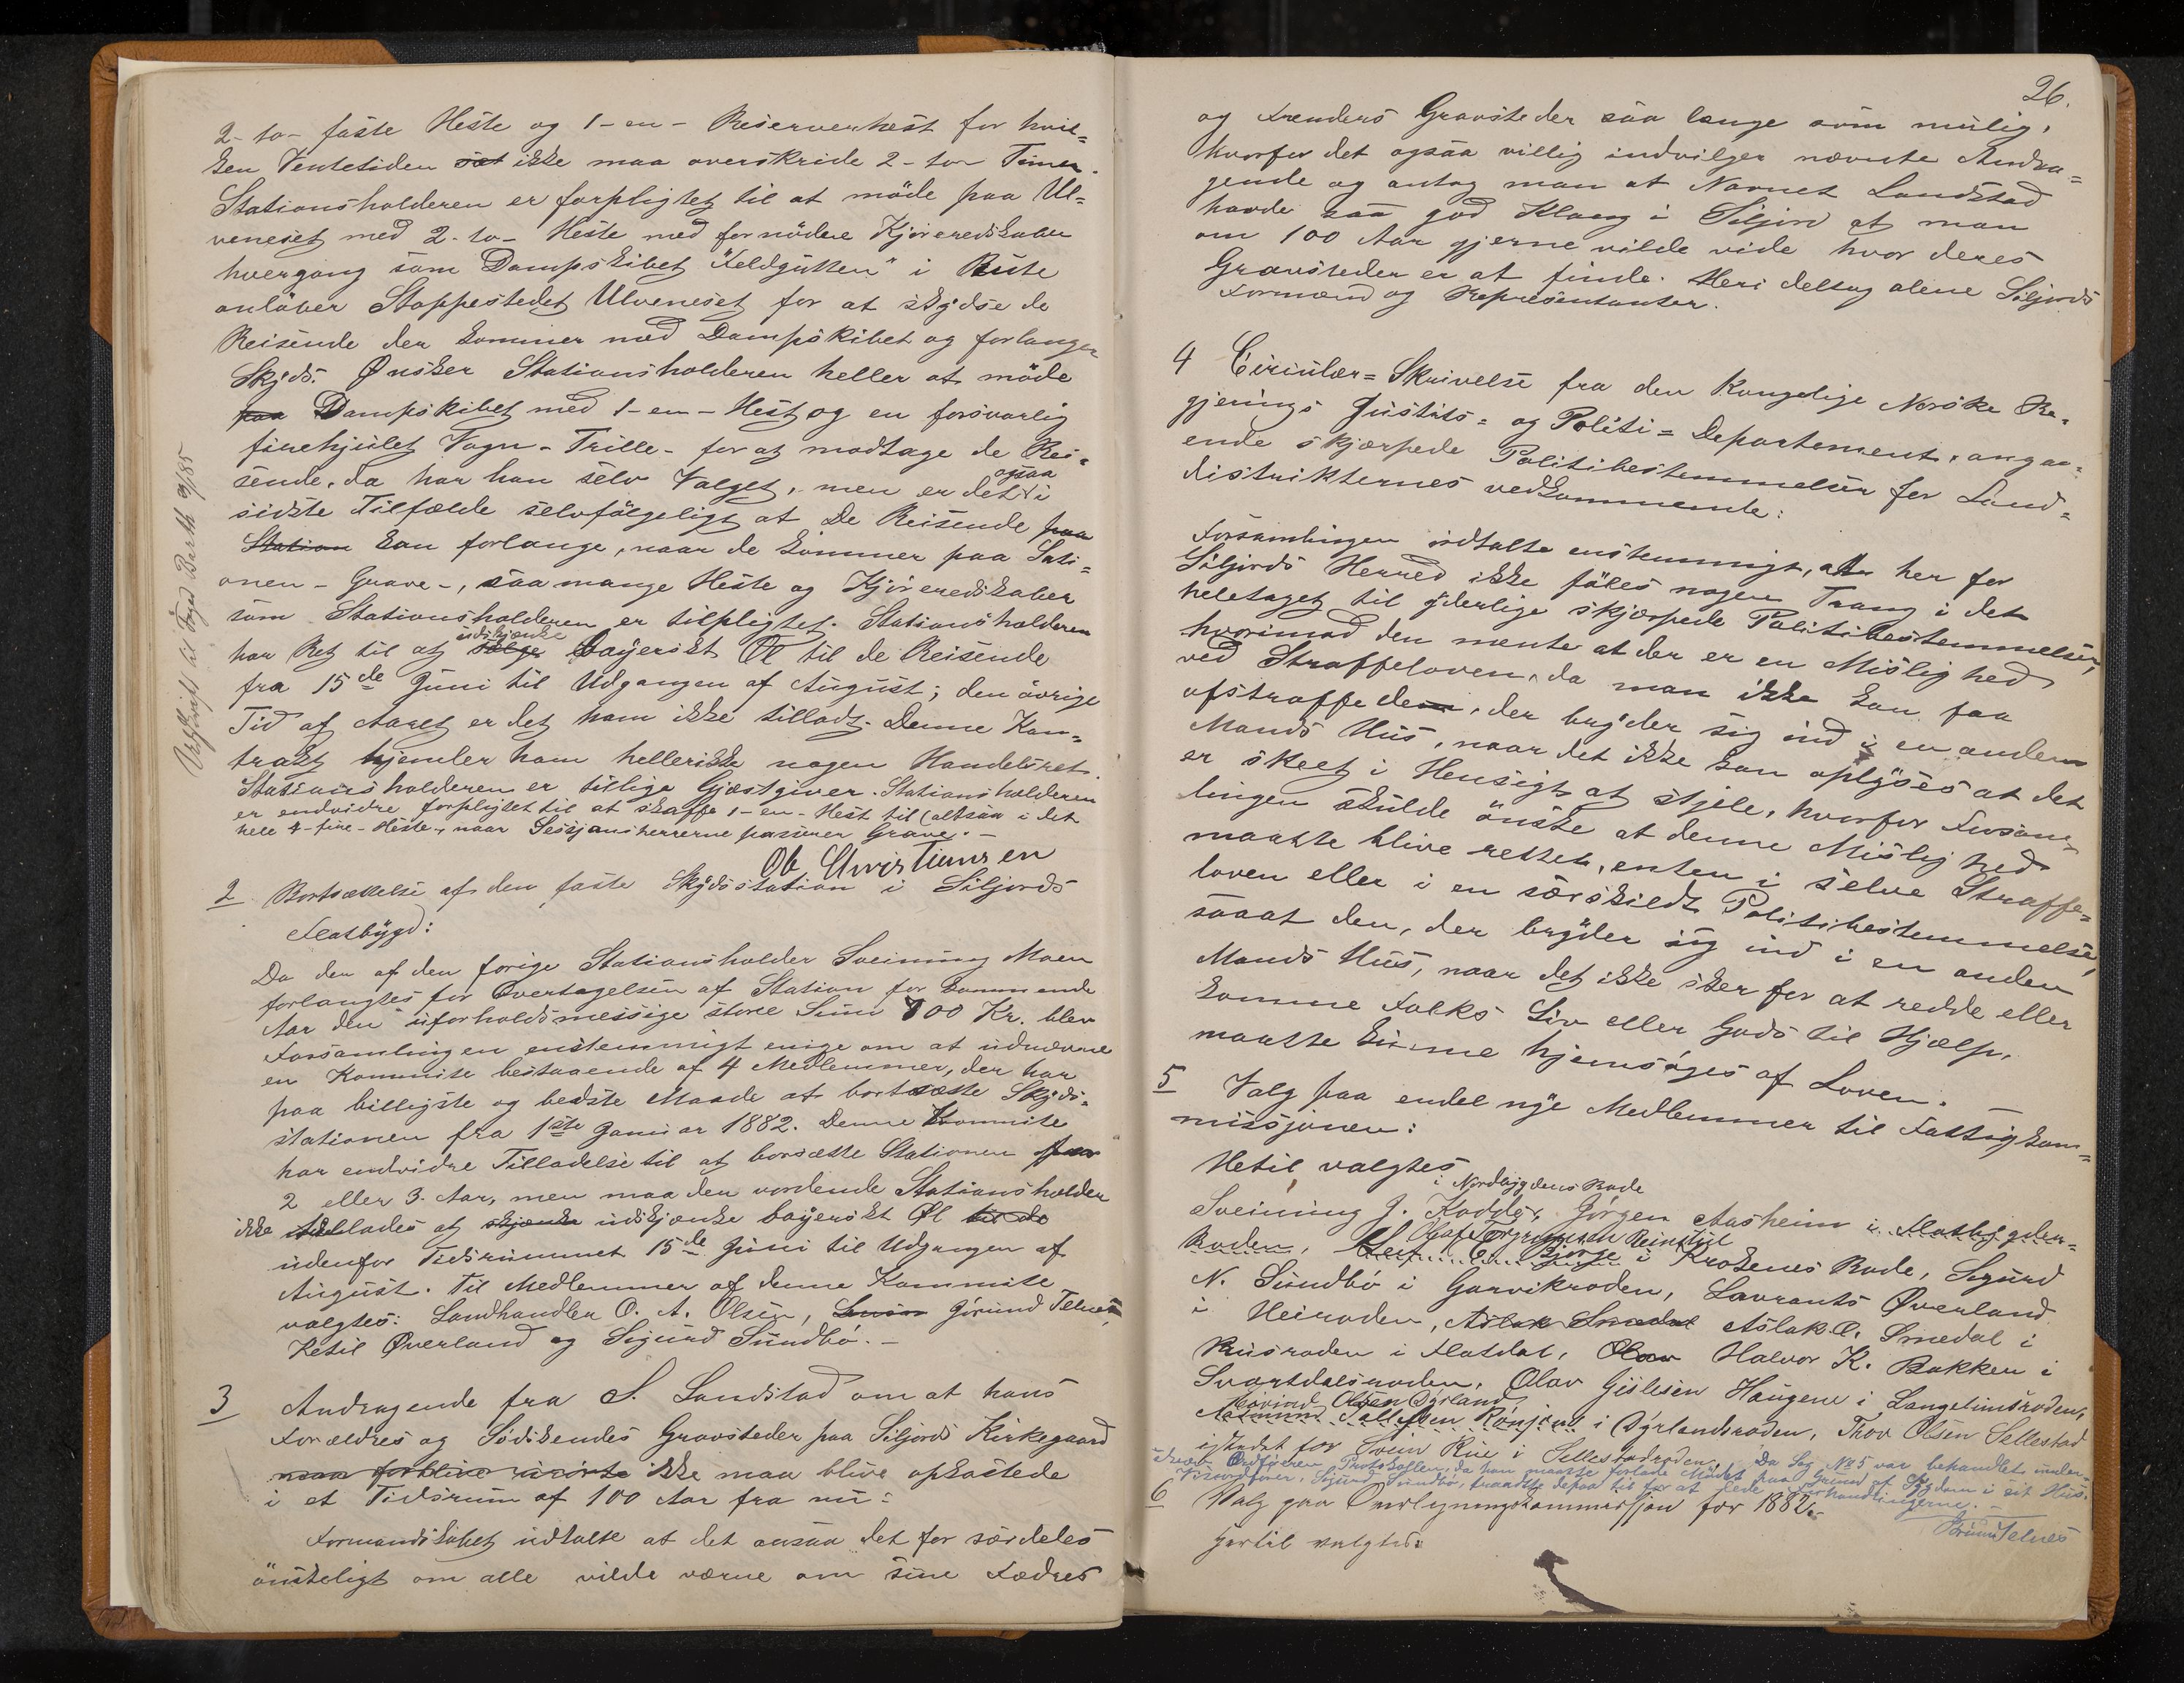 2-to- faste Heste og 1-en- Reserverhest for hvil=
ken Ventetiden sat ikke maa overskride 2-to- Timer.
Stationsholderen er forpligtet til at möde paa Ul=
veneset med 2-to- Heste med fornödne Kjöreredskaber
hvergang som Dampskibet "Feldgutten" i Rute
anlöber Stoppestedet Ulveneset for at skydse de
Reisende der kommer med Dampskibet og forlanger
Skyds. Ønsker Stationsholderen heller at möde
paa Dampskibet med 1-en-Hest og en forsvarlig
firehjulet Vogn-Trille- for at modtage de Rei=
sende, da har han selv Valget, men er det også i
sidste Tilfælde selvfölgeligt at De Reisende paa
Station kan forlange, naar de kommer paa Sati=
onen-Grave-, saa mange Heste og Kjöreredskaber
som Stationsholderen er tilpligtet. Stationsholderen
har Ret til at sælge udskjænke bayerskt Øl til de Reisende
fra 15de Juni til Udgangen af August; den övrige
Tid af Aaret er det ham ikke tilladt. Denne Kon=
trakt hjemler ham hellerikke nogen Handelsret.
Stationsholderen er tillige Gjæstgiver. Stationsholderen
er endvidre forpligtet til at skaffe 1-en-Hest til (altsaa i det
hele 4-fire-Heste-, naar Sessjonsherrerne passerer Grave.-
Ob Christiansen
Udskrift til Foged Barth 9/85
2 Bortsættelse af den faste Skydsstation i Siljords
Flatbygd:
Da der af den forige Stationsholder Sveinung Moen
forlangtes for Overtagelsen af Station for kommende
Aar den uforholdsmessige store Sum 700 Kr. blev
Forsamlingen enstemmigt enige om at udnævne
en Kommite bestaaende af 4 Medlemmer, der har
paa billigste og bedste Maade at bortsætte Skyds=
stationen fra 1ste Januar 1882. Denne Kommite
har endvidre Tilladelse til at borsætte Stationen paa
2 eller 3. Aar, men maa den vordende Stationsholder
ikke tillades at skjænke udskjænke bayerskt Øl til de
udenfor Tidsrummet 15de Juni til Udgangen af
August. Til Medlemmer af denne Kommite
valgtes: Landhandler O. A. Olsen, Gjerund Telnes,
Ketil Øverland og Sigurd Sundbö.-
3 Andragende fra S. Landstad om at hans
Forældres og Södskendes Gravsteder paa Siljords Kirkegaard
maa forblive urörte ikke maa blive opkastede
i et Tidsrum af 100 Aar fra nu:
Formandskabet udtalte at det ansaa det for særdeles
önskeligt om alle vilde værne om sine Fædres
26.
og Frenders Gravsteder saa længe som mulig,
hvorfor det ogsaa villig indvilger nævnte Andra=
gende og antog man at Navnet Landstad
havde saa god Klang i Siljord at man
om 100 Aar gjerne vilde vide hvor deres
Gravsteder er at finde. Heri deltog alene Siljords
Formænd og Representanter.
4 Circulær=Skrivelse fra den Kongelige Norske Re=
gjerings Justits= og Politi=Departement, angaa=
ende skjærpede Politibestemmelser for Land=
distrikternes vedkommende:
Forsamlingen udtalte enstemmigt, at her for
Siljords Herred ikke föles nogen Trang i det
heletaget til yderlige skjærpede Politibestemmelser,
hvorimod den mente at der er en Mislighed
ved Straffeloven, da man ikke kan faa
afstraffe den, der bryder sig ind i en anden
Mands Hus, naar det ikke kan oplyses at det
er skeet i Hensigt at stjele, hvorfor Forsam=
lingen skulde önske at denne Mislighed
maatte blive rettet, enten i selve Straffe=
loven eller i en særskildt Politibestemmelse,
saaat den, der bryder sig ind i en anden
Mands Hus, naar det ikke sker for at redde eller
komme Folks Liv eller Gods til Hjælp,
maatte kunne hjemsöges af Loven. -
5 Valg paa endel nye Medlemmer til Fattigkom=
missjonen:
Hetil valgtes
i Nordbygdens Rode
Sveinung J. Kodde, Jörgen Aasheim i Flatbygden=
Roden, Leif C. Bjerge Olaf Torgrimsen Reinskul i Krokenes Rode, Sigurd
N. Sundbö i Garvikroden, Lavrants Øverland
i Heiroden, Aslak Smedal Aslak O. Smedal i
Rusroden i Flatdal, Olav Halvor K. Bakken i
Svartdalsroden, Olav Gislesen Haugene i Langelimsroden,
Eivind Olsen Dyrland
Aasmund Tallefsen Rönjom i Dyrlandsroden, Thov Olsen Sellestad
istedet for Svein Rui i Sellestadroden. Da Sag No 5 var behandlet under=
skrev Ordföreren Protokollen, da han maatte forlade Mödet paa Grund af Sygdom i sit Hus.
Viseordförer, Sigurd Sundbö, traadte depaa til for at lede Forhandlingerne. -
Telnes
6 Valg paa Overligningskommissjon for 1882.
Hertil valgtes: